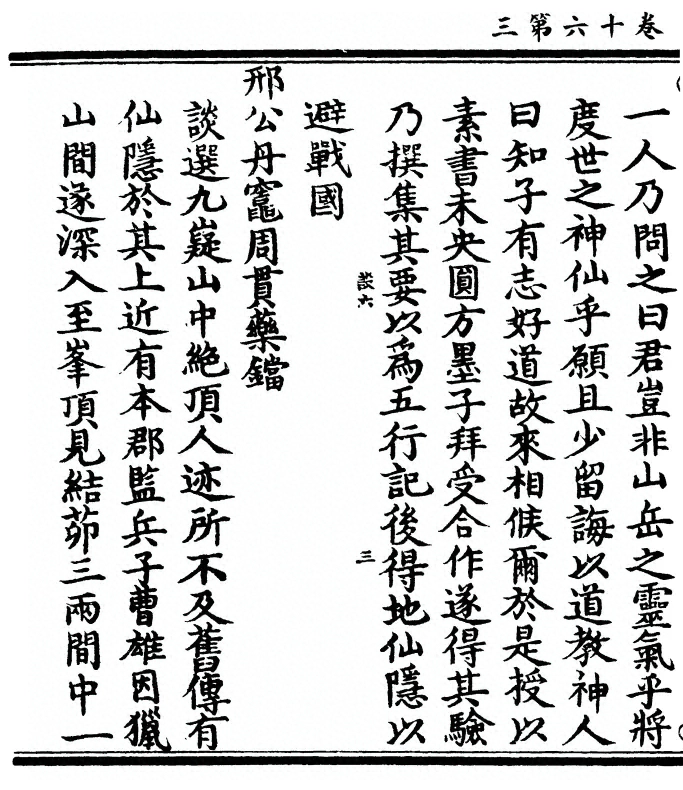 三第六十卷
一人乃問之曰君豈非山岳之靈氣乎將
度世之神仙乎願且少留誨以道教神人
曰知子有志好道故來相候爾於是授以
素書未央圓方墨子拜受合作遂得其驗
乃撰集其要以為五行記後得地仙隱以
談六
三
避戰國
邢公丹竈周貫藥鐺
談選九嶷山中絶頂人迹所不及舊傳有
仙隱於其上近有本郡監兵子曹雄因獵
山間遂深入至峯頂見結茆三兩間中一